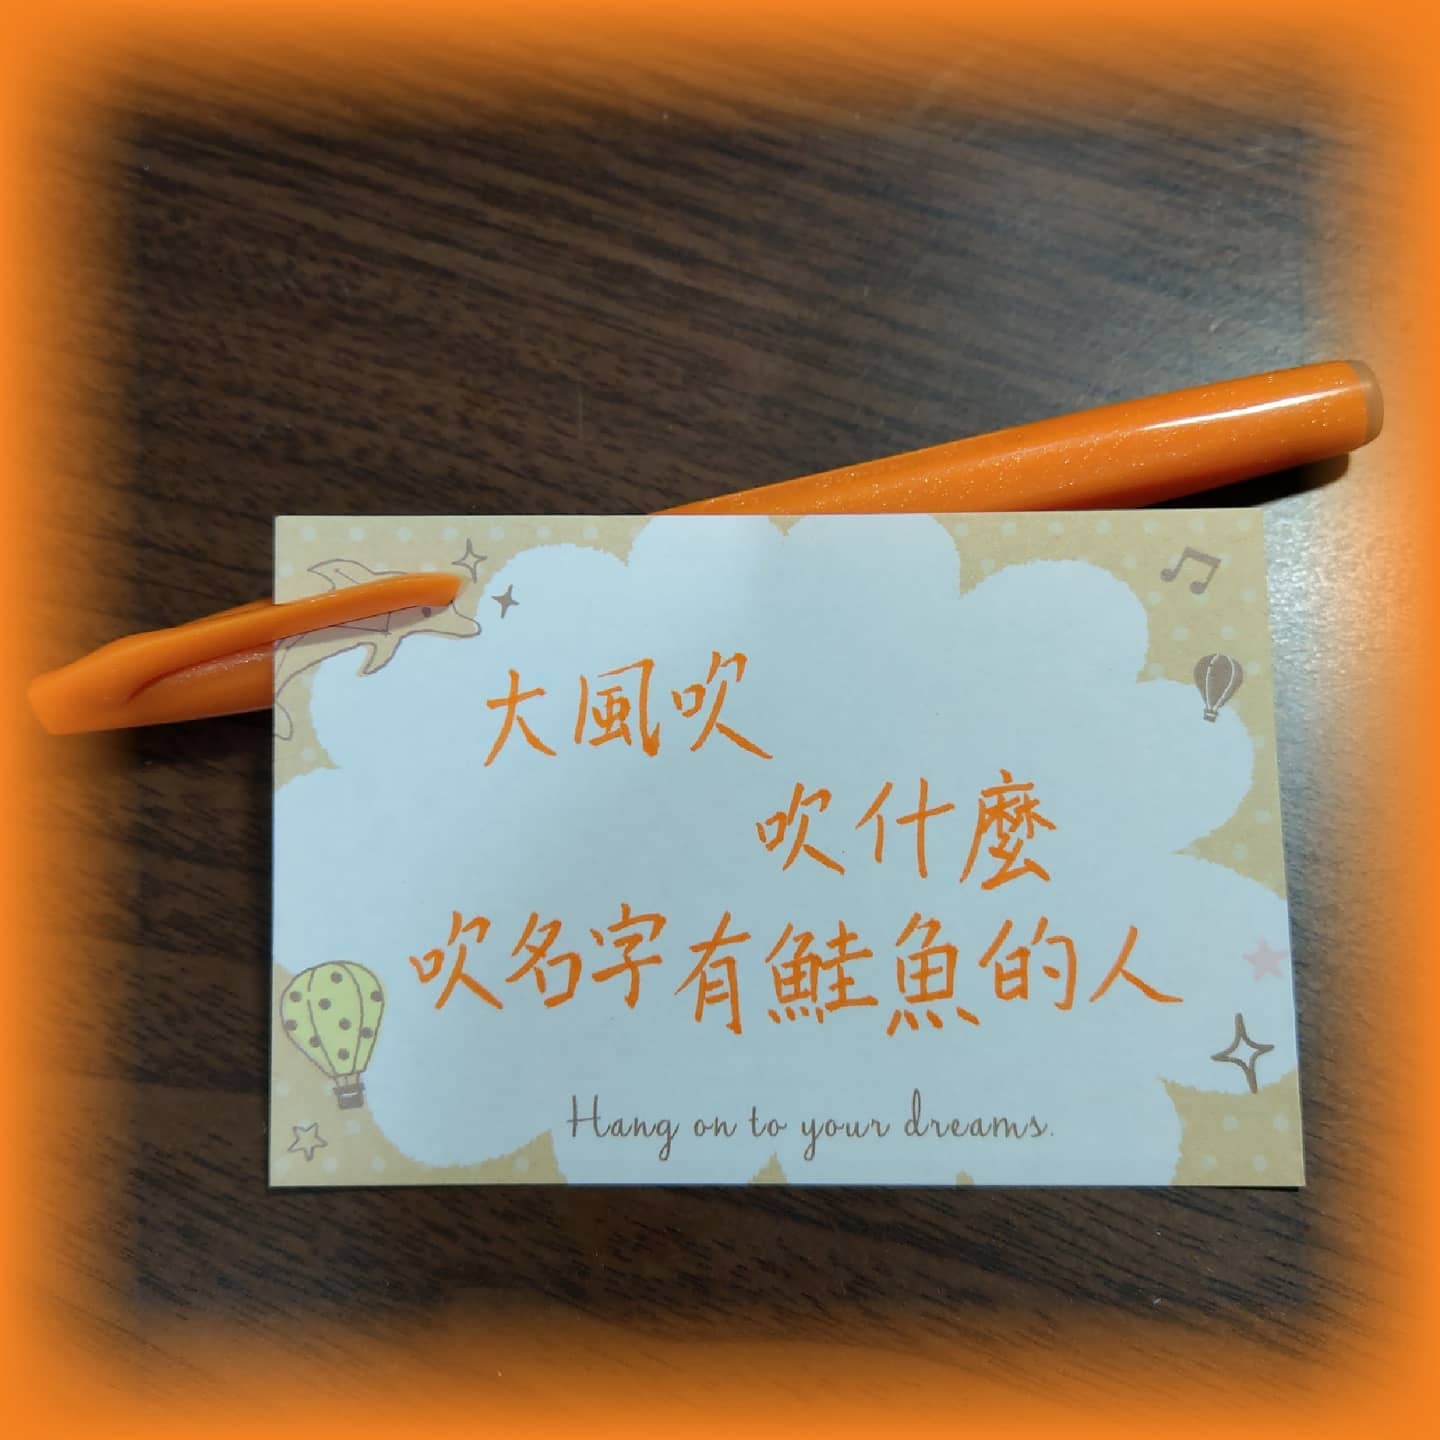 大風吹
吹什麼
吹名字有鮭魚的人
Hang on to your dreams.